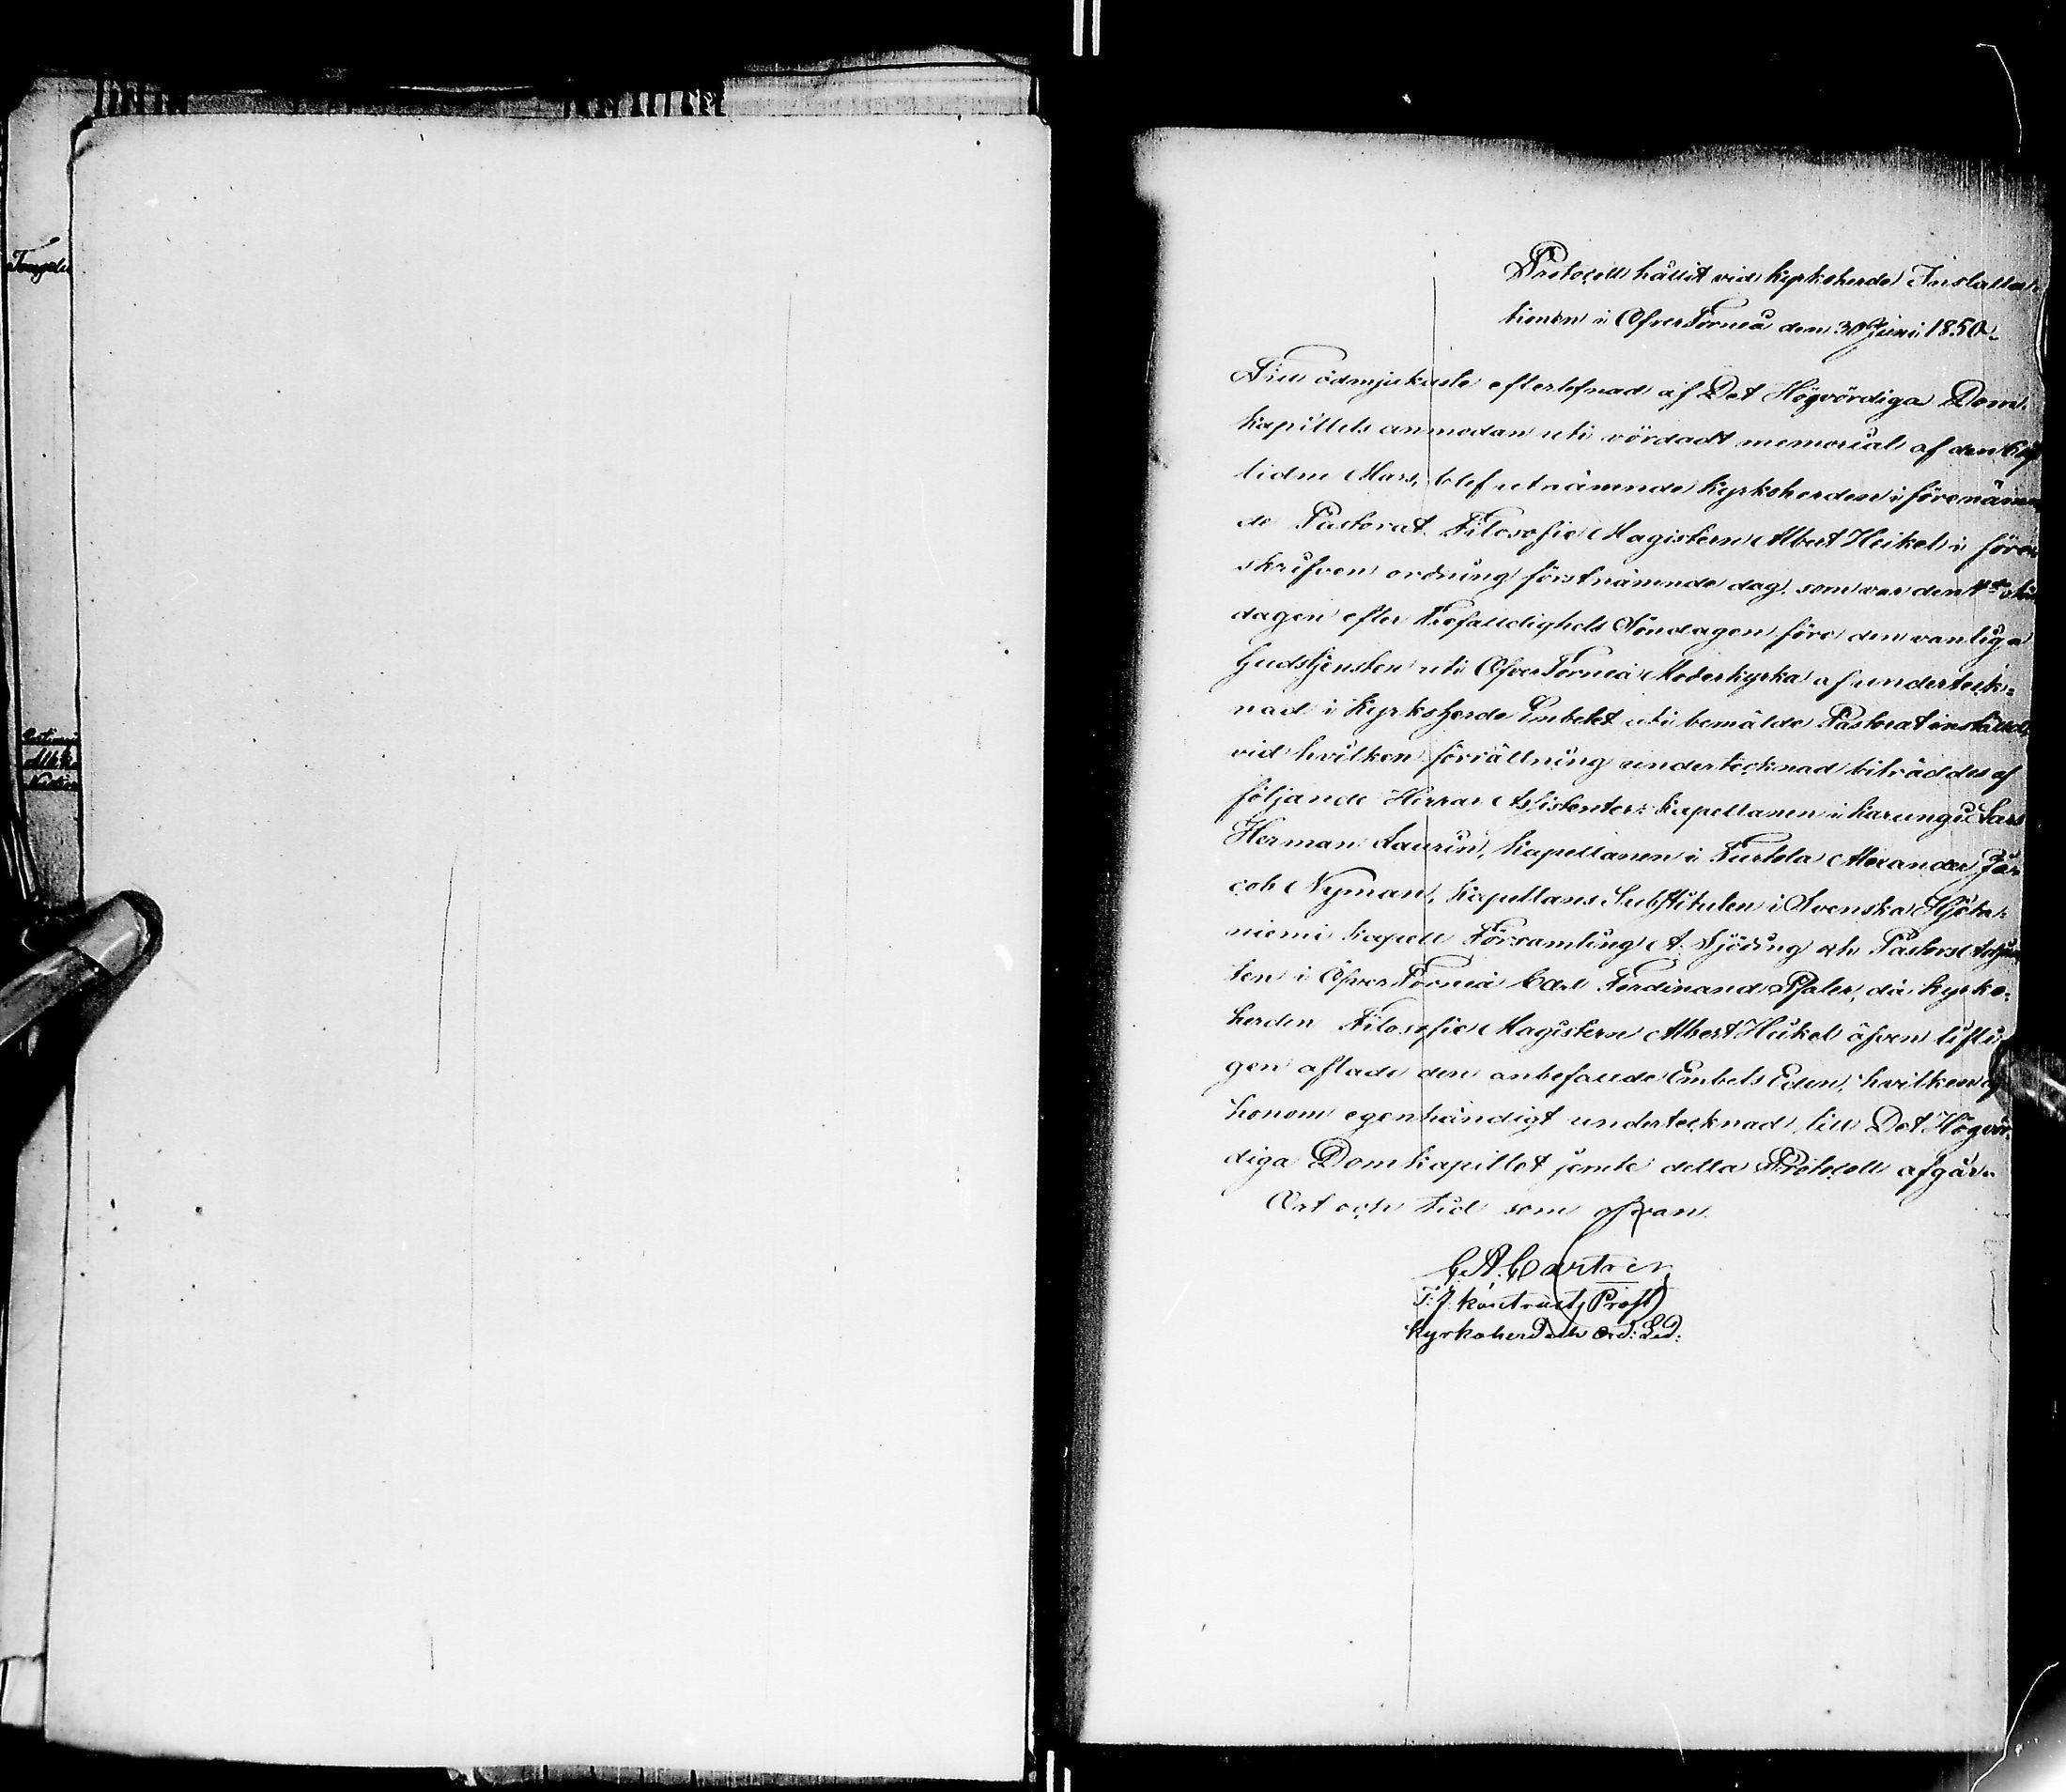 Protocoll hållit vid kyrkoherde Installa-
tionen i ÖfverTorneå den 30de Juni 1850.
Till ödmjukaste efterlefnad af Det Högvördiga Dom-
kapitlets anmodan uti vördadt memorial af den
lidne Mars, blef utnämnde kyrkoherden i förenämn-
de Pastorat Filosofie Magistern Albert Heikel i före-
skrifven ordning förstnämnde dag, som var den
dagen efter Trefalldighets Söndagen före den vanliga
Gudstjensten uti ÖfverTorneå Moderkyrka af underteck-
nad i Kyrkoherde Embetet uti bemälde Pastorat installd,
vid hvilken förrättning undertecknad biträddes af
följande Herrar Assistenter: Kapellanen i Karungi Lars
Herman Laurin, Kapellanen i Turtola Alexander Ja-
cob Nyman, Kapellans Substituten i Svenska Hjeta-
niemi kapell Församling A. Sjöding och Pastors Adjunk-
ten i ÖfverTorneå Carl Ferdinand Pfaler, då Kyrko-
herden Filosofie Magistern Albert Heikel äfven lifli-
gen aflade den anbefallde Embets Eden, hvilken af
honom egenhändigt undertecknad, till Det Högvör-
diga Domkapitlet jemte detta Protocoll afgår.
Ort och tid som ofvan.
C. A. Castrén
T: f. kontrakts Prost
kyrkoherde och Ord: Led: